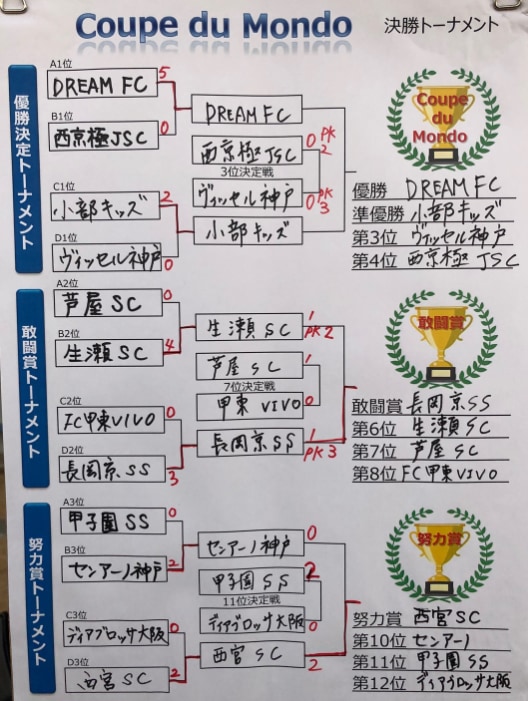 Coupe du Mondo 決勝トーナメント
優勝決定トーナメント
A1位
DREAM FC 5
B1位
西京極JSC 0
C1位
小部キッズ 2
D1位
ヴィッセル神戸 0
DREAM FC
西京極JSC 0 PK 2
3位決定戦
ヴィッセル神戸 0 PK 3
小部キッズ
Coupe
du
Mondo
優勝 DREAM FC
準優勝 小部キッズ
第3位 ヴィッセル神戸
第4位 西京極 JSC
敢闘賞トーナメント
A2位
芦屋 SC 0
B2位
生瀬 SC 4
C2位
FC甲東VIVO 0
D2位
長岡京SS 3
生瀬 SC 1 PK 2
芦屋 SC 1
7位決定戦
甲東 VIVO 0
長岡京SS 1 PK 3
敢闘賞
敢闘賞 長岡京SS
第6位 生瀬SC
第7位 芦屋 SC
第8位 FC甲東VIVO
努力賞トーナメント
A3位
甲子園SS 0
B3位
センアーノ神戸 2
C3位
ディアブロッサ大阪 0
D3位
西宮 SC 2
センアーノ神戸 0
甲子園 SS 2
11位決定戦
ディアブロッサ大阪 0
西宮 SC 2
努力賞
努力賞 西宮SC
第10位 センアーノ
第11位 甲子園 SS
第12位 ディアブロッサ大阪